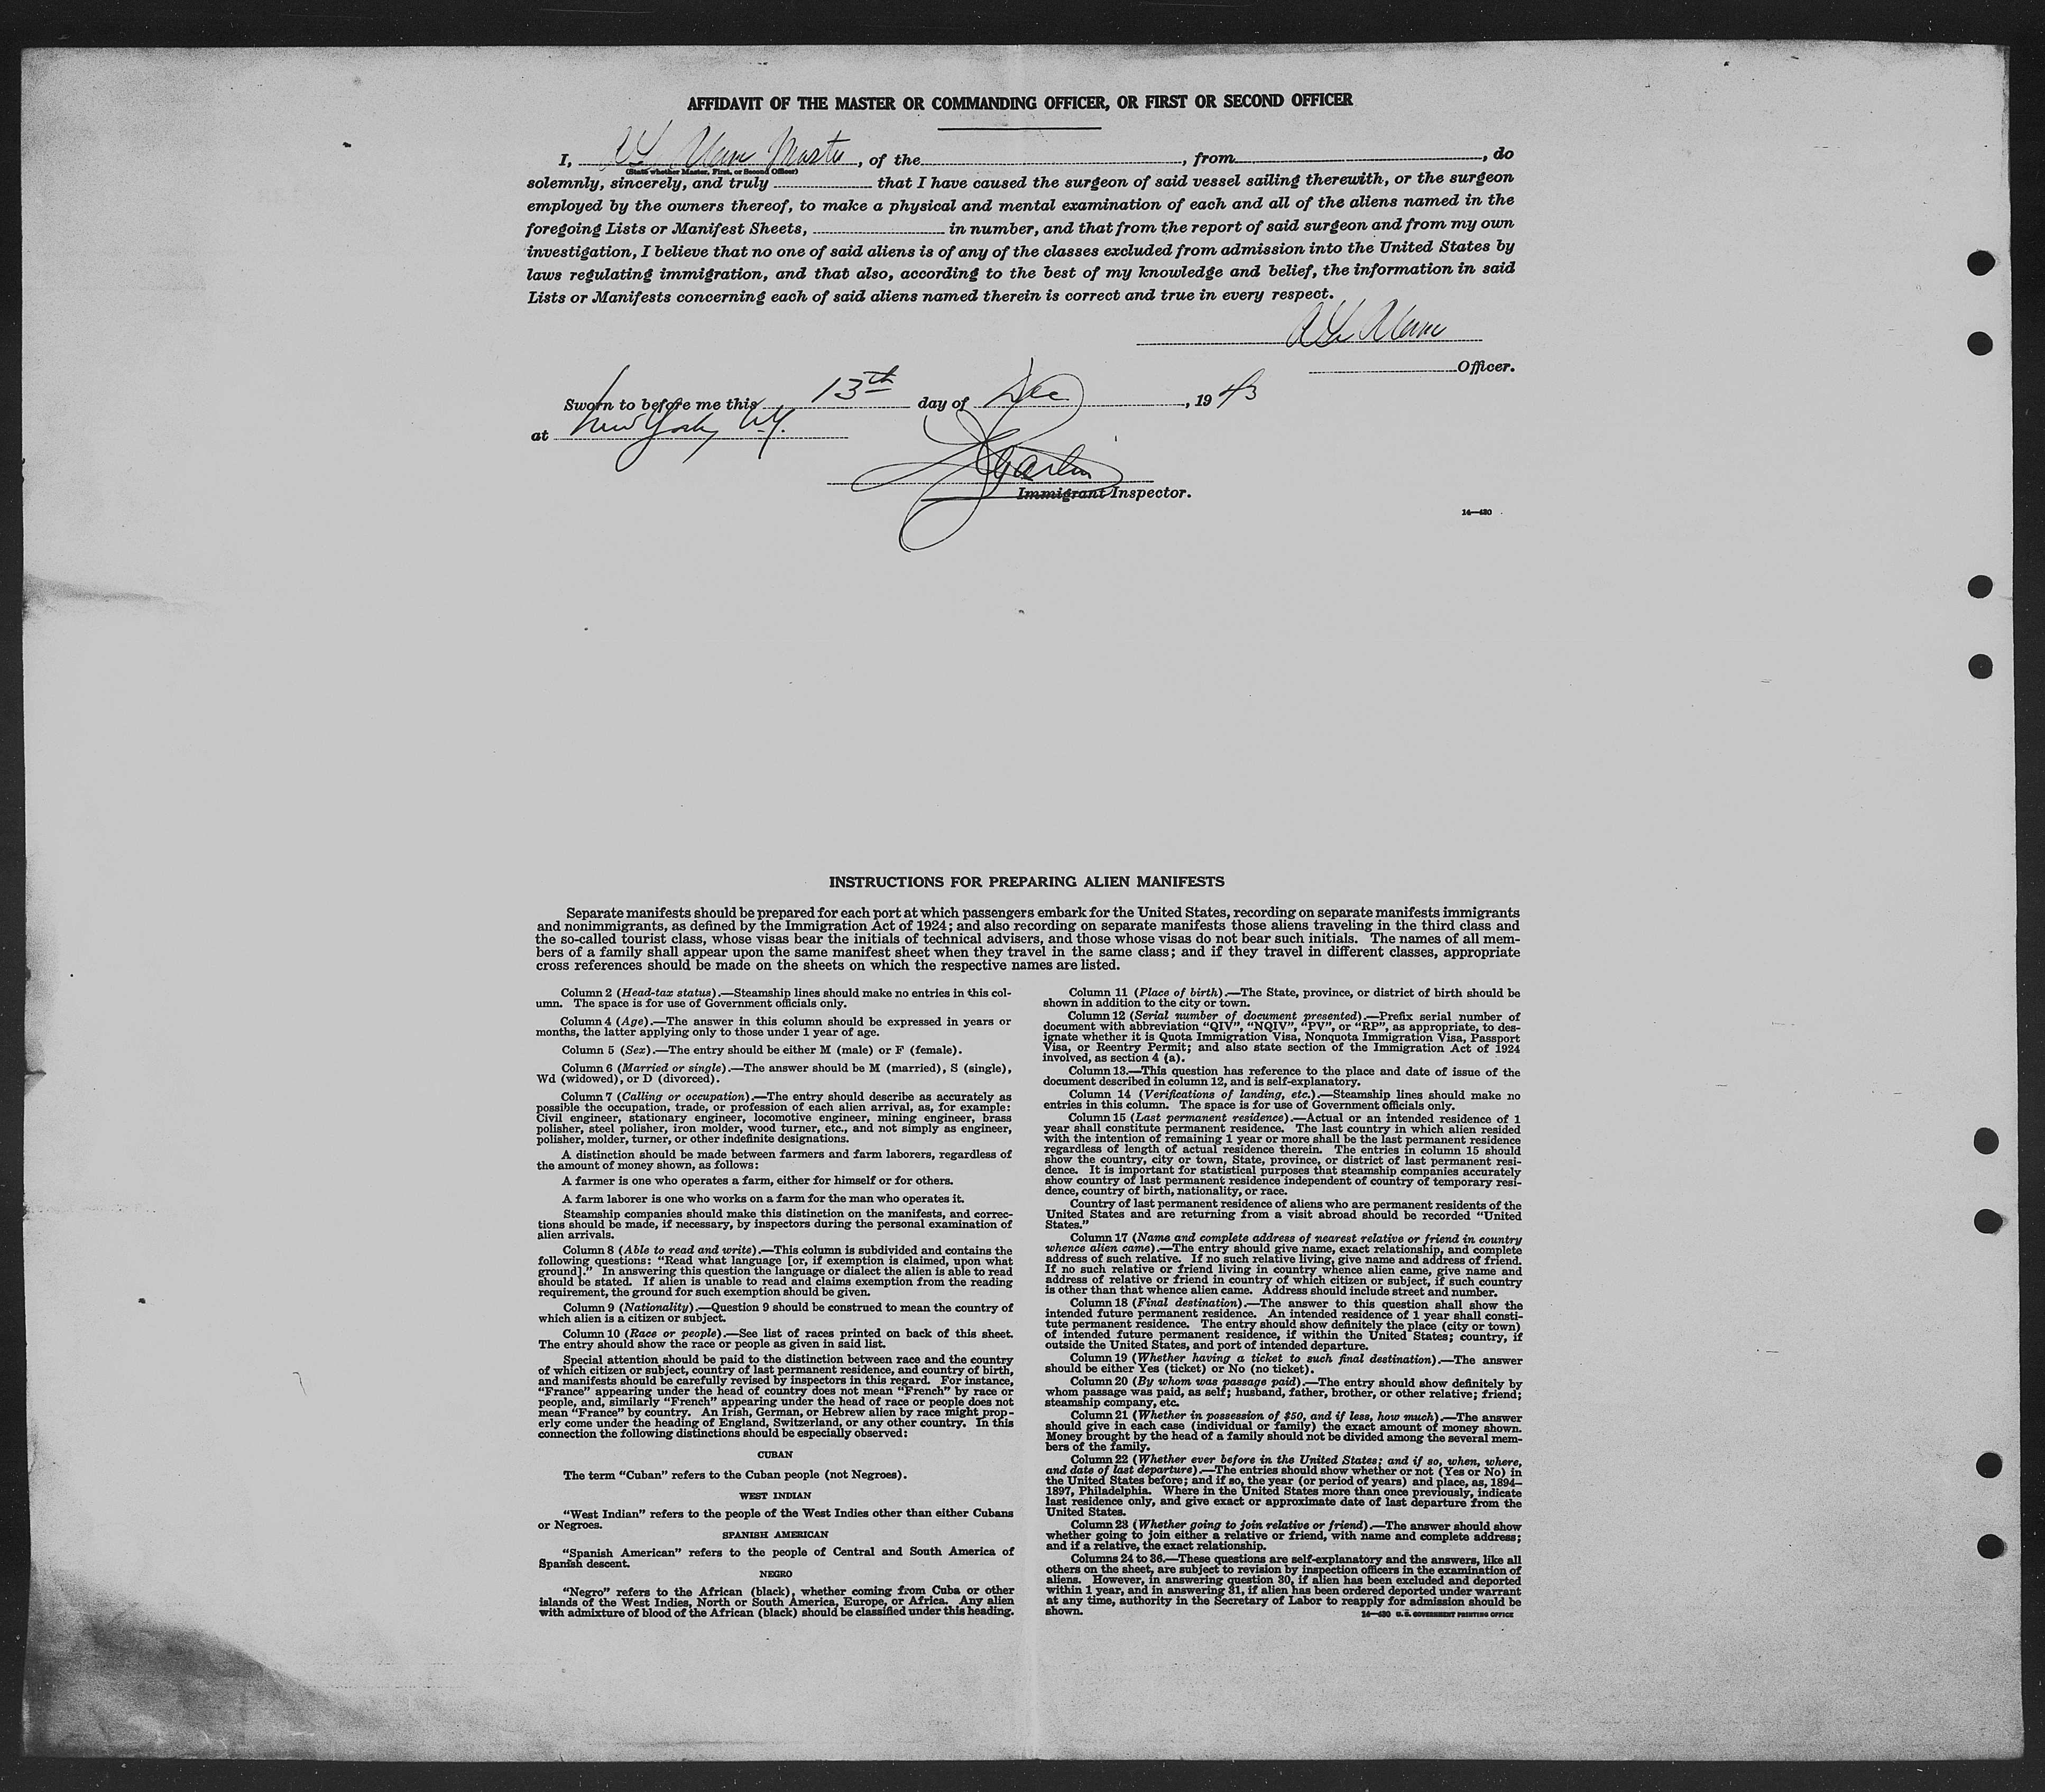 AFFIDAVIT OF THE MASTER OR COMMANDING OFFICER, OR FIRST OR SECOND OFFICER
I, Master, of the, from, do
(State whether Master, First, or Second Officer)
solemnly, sincerely, and truly that I have caused the surgeon of said vessel sailing therewith, or the surgeon
employed by the owners thereof, to make a physical and mental examination of each and all of the aliens named in the
foregoing Lists or Manifest Sheets, in number, and that from the report of said surgeon and from my own
investigation, I believe that no one of said aliens is of any of the classes excluded from admission into the United States by
laws regulating immigration, and that also, according to the best of my knowledge and belief, the information in said
Lists or Manifests concerning each of said aliens named therein is correct and true in every respect.
Officer.
Sworn to before me this 13th day of Dec, 1943
at New York, N.Y.
Immigrant Inspector.
14—430
INSTRUCTIONS FOR PREPARING ALIEN MANIFESTS
Separate manifests should be prepared for each port at which passengers embark for the United States, recording on separate manifests immigrants
and nonimmigrants, as defined by the Immigration Act of 1924; and also recording on separate manifests those aliens traveling in the third class and
the so-called tourist class, whose visas bear the initials of technical advisers, and those whose visas do not bear such initials. The names of all mem-
bers of a family shall appear upon the same manifest sheet when they travel in the same class; and if they travel in different classes, appropriate
cross references should be made on the sheets on which the respective names are listed.
Column 2 (Head-tax status).—Steamship lines should make no entries in this col-
umn. The space is for use of Government officials only.
Column 4 (Age).—The answer in this column should be expressed in years or
months, the latter applying only to those under 1 year of age.
Column 5 (Sex).—The entry should be either M (male) or F (female).
Column 6 (Married or single).—The answer should be M (married), S (single),
Wd (widowed), or D (divorced).
Column 7 (Calling or occupation).—The entry should describe as accurately as
possible the occupation, trade, or profession of each alien arrival, as, for example:
Civil engineer, stationary engineer, locomotive engineer, mining engineer, brass
polisher, steel polisher, iron molder, wood turner, etc., and not simply as engineer,
polisher, molder, turner, or other indefinite designations.
A distinction should be made between farmers and farm laborers, regardless of
the amount of money shown, as follows:
A farmer is one who operates a farm, either for himself or for others.
A farm laborer is one who works on a farm for the man who operates it.
Steamship companies should make this distinction on the manifests, and correc-
tions should be made, if necessary, by inspectors during the personal examination of
alien arrivals.
Column 8 (Able to read and write).—This column is subdivided and contains the
following questions: "Read what language [or, if exemption is claimed, upon what
ground]." In answering this question the language or dialect the alien is able to read
should be stated. If alien is unable to read and claims exemption from the reading
requirement, the ground for such exemption should be given.
Column 9 (Nationality).—Question 9 should be construed to mean the country of
which alien is a citizen or subject.
Column 10 (Race or people).—See list of races printed on back of this sheet.
The entry should show the race or people as given in said list.
Special attention should be paid to the distinction between race and the country
of which citizen or subject, country of last permanent residence, and country of birth,
and manifests should be carefully revised by inspectors in this regard. For instance,
"France" appearing under the head of country does not mean "French" by race or
people, and, similarly "French" appearing under the head of race or people does not
mean "France" by country. An Irish, German, or Hebrew alien by race might prop-
erly come under the heading of England, Switzerland, or any other country. In this
connection the following distinctions should be especially observed:
CUBAN
The term "Cuban" refers to the Cuban people (not Negroes).
WEST INDIAN
"West Indian" refers to the people of the West Indies other than either Cubans
or Negroes.
SPANISH AMERICAN
"Spanish American" refers to the people of Central and South America of
Spanish descent.
NEGRO
"Negro" refers to the African (black), whether coming from Cuba or other
islands of the West Indies, North or South America, Europe, or Africa. Any alien
with admixture of blood of the African (black) should be classified under this heading.
Column 11 (Place of birth).—The State, province, or district of birth should be
shown in addition to the city or town.
Column 12 (Serial number of document presented).—Prefix serial number of
document with abbreviation "QIV", "NQIV", "PV", or "RP", as appropriate, to des-
ignate whether it is Quota Immigration Visa, Nonquota Immigration Visa, Passport
Visa, or Reentry Permit; and also state section of the Immigration Act of 1924
involved, as section 4 (a).
Column 13.—This question has reference to the place and date of issue of the
document described in column 12, and is self-explanatory.
Column 14 (Verifications of landing, etc.).—Steamship lines should make no
entries in this column. The space is for use of Government officials only.
Column 15 (Last permanent residence).—Actual or an intended residence of 1
year shall constitute permanent residence. The last country in which alien resided
with the intention of remaining 1 year or more shall be the last permanent residence
regardless of length of actual residence therein. The entries in column 15 should
show the country, city or town, State, province, or district of last permanent resi-
dence. It is important for statistical purposes that steamship companies accurately
show country of last permanent residence independent of country of temporary resi-
dence, country of birth, nationality, or race.
Country of last permanent residence of aliens who are permanent residents of the
United States and are returning from a visit abroad should be recorded "United
States."
Column 17 (Name and complete address of nearest relative or friend in country
whence alien came).—The entry should give name, exact relationship, and complete
address of such relative. If no such relative living, give name and address of friend.
If no such relative or friend living in country whence alien came, give name and
address of relative or friend in country of which citizen or subject, if such country
is other than that whence alien came. Address should include street and number.
Column 18 (Final destination).—The answer to this question shall show the
intended future permanent residence. An intended residence of 1 year shall consti-
tute permanent residence. The entry should show definitely the place (city or town)
of intended future permanent residence, if within the United States; country, if
outside the United States, and port of intended departure.
Column 19 (Whether having a ticket to such final destination).—The answer
should be either Yes (ticket) or No (no ticket).
Column 20 (By whom was passage paid).—The entry should show definitely by
whom passage was paid, as self; husband, father, brother, or other relative; friend;
steamship company, etc.
Column 21 (Whether in possession of $50, and if less, how much).—The answer
should give in each case (individual or family) the exact amount of money shown.
Money brought by the head of a family should not be divided among the several mem-
bers of the family.
Column 22 (Whether ever before in the United States; and if so, when, where,
and date of last departure).—The entries should show whether or not (Yes or No) in
the United States before; and if so, the year (or period of years) and place, as, 1894–
1897, Philadelphia. Where in the United States more than once previously, indicate
last residence only, and give exact or approximate date of last departure from the
United States.
Column 23 (Whether going to join relative or friend).—The answer should show
whether going to join either a relative or friend, with name and complete address;
and if a relative, the exact relationship.
Columns 24 to 36.—These questions are self-explanatory and the answers, like all
others on the sheet, are subject to revision by inspection officers in the examination of
aliens. However, in answering question 30, if alien has been excluded and deported
within 1 year, and in answering 31, if alien has been ordered deported under warrant
at any time, authority in the Secretary of Labor to reapply for admission should be
shown.
14—430 U. S. GOVERNMENT PRINTING OFFICE